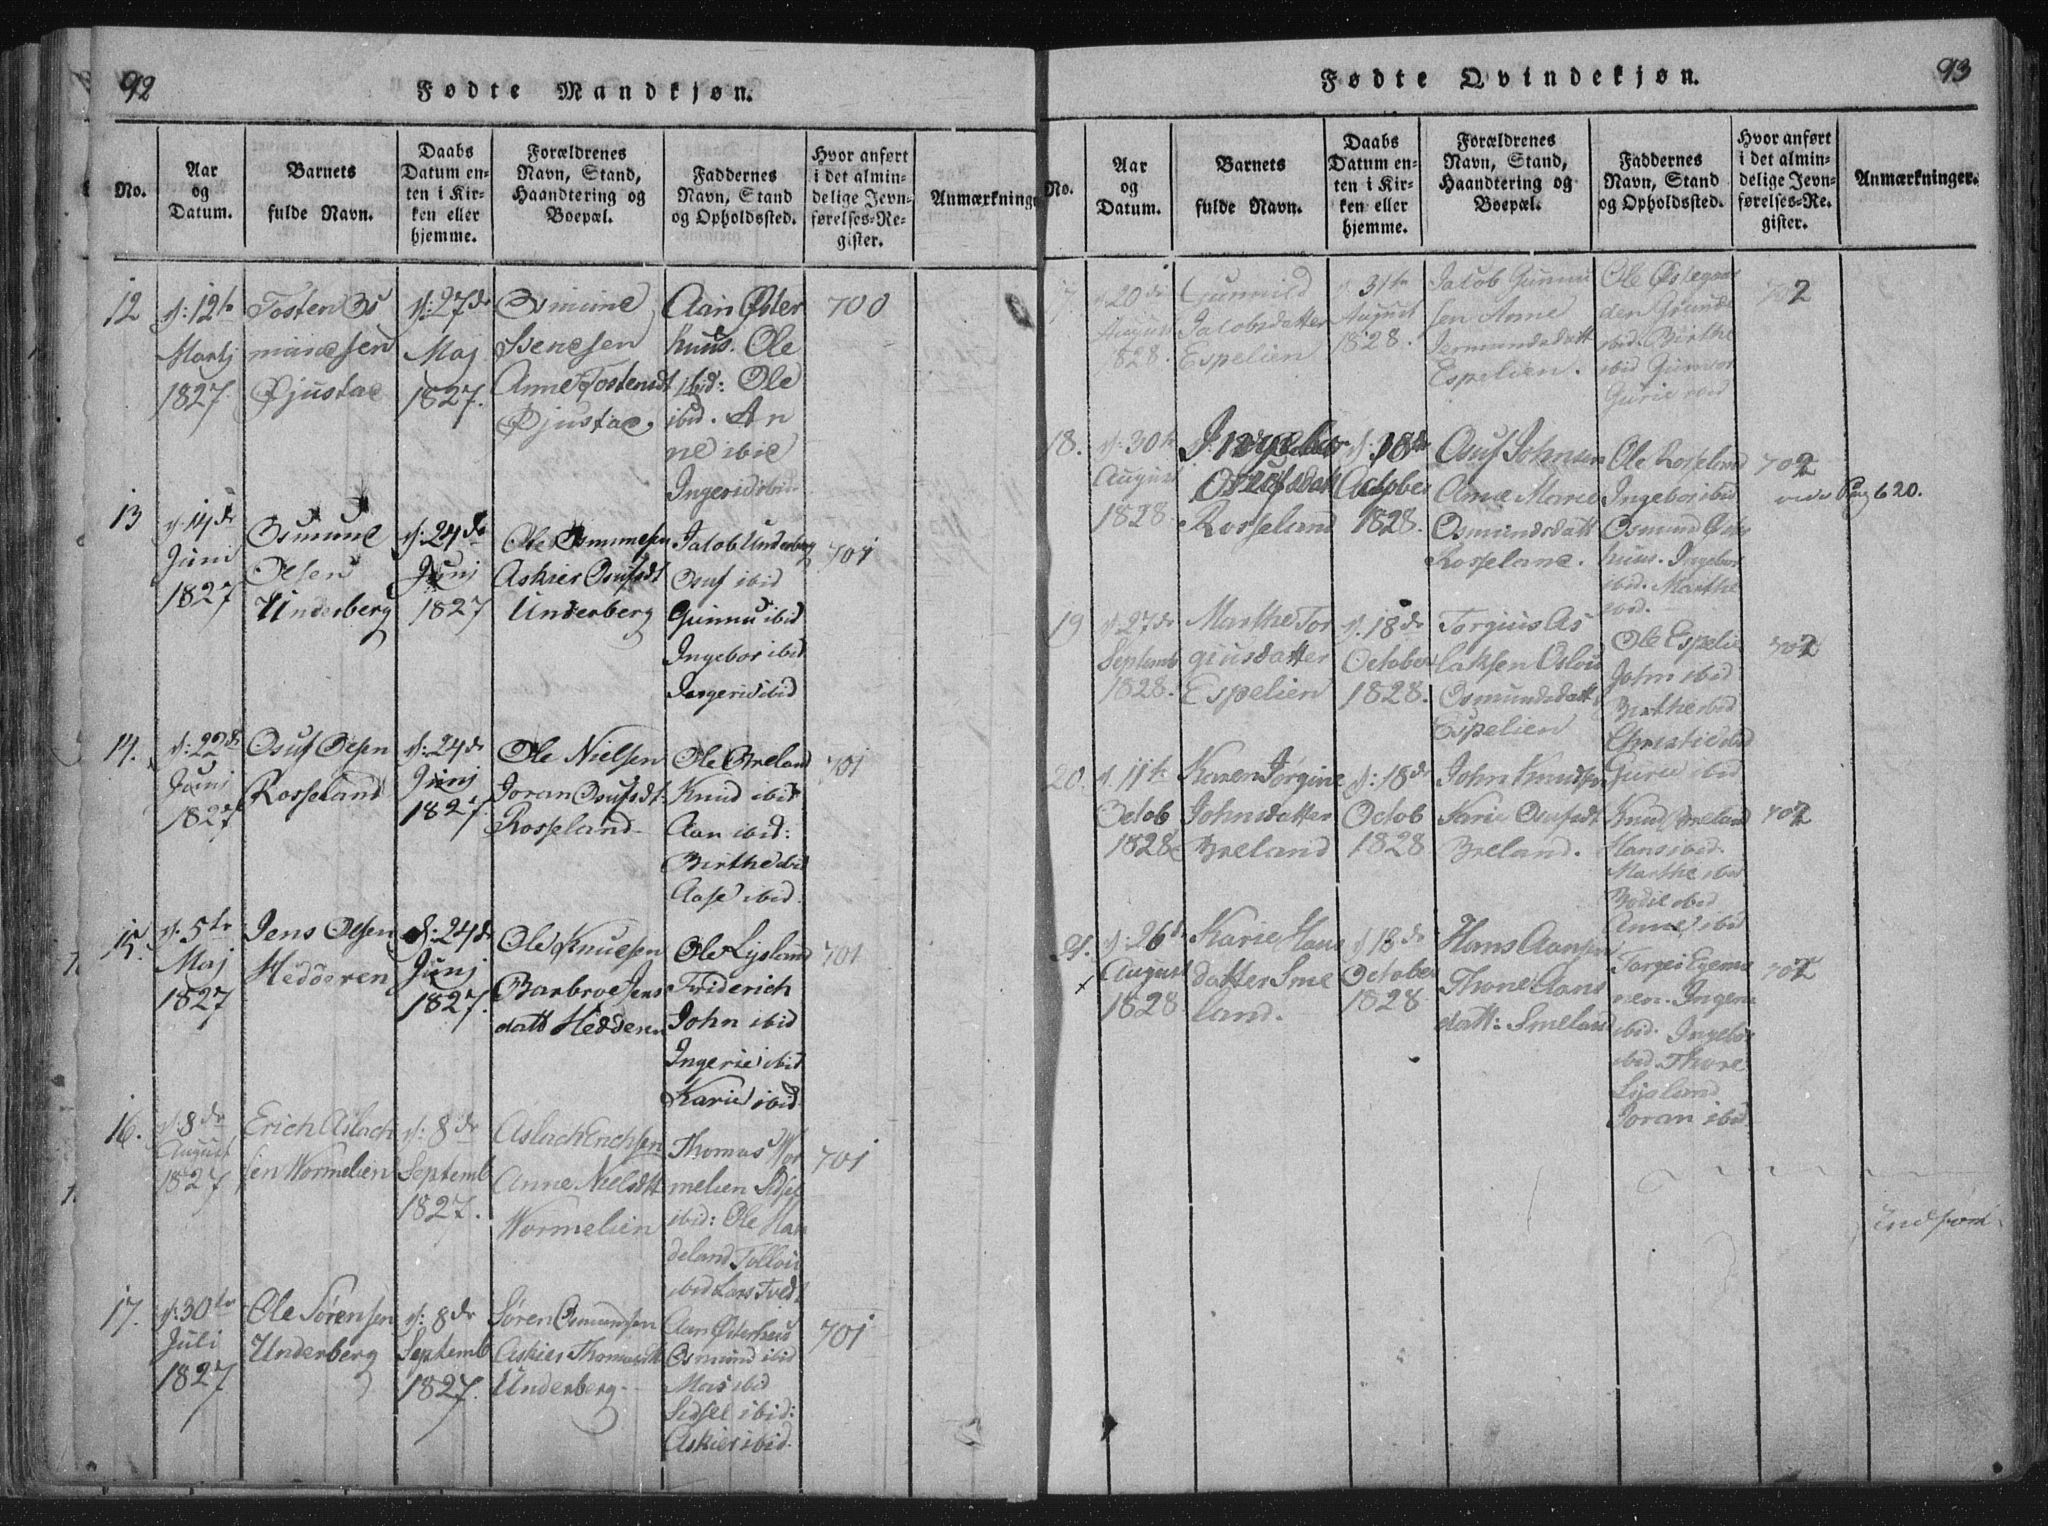 92
Fødte Mandkjøn.
No.
Aar
og
Datum.
Barnets
fulde Navn.
Daabs
Datum en-
ten i Kir-
ken eller
hjemme.
Forældrenes
Navn, Stand,
Haandtering og
Boepæl.
Faddernes
Navn, Stand
og Opholdssted.
Hvor anført
i det almin-
delige Jevn-
førelses-Re-
gister.
Anmærkninge
12
d: 12te
Martj
1827
Tosten Os
mundsen
Øjustad
d: 27de
Maj
1827.
Osmund
Svensen
Anne Tostensdt
Øjustad.
Aan Øster
huus. Ole
ibid: Ole
ibid. An
ne ibid
Ingerid ibid
700
13
d. 14de
Juni
1827
Osmund
Olsen
Underberg
d: 24de
Junj
1827
Ole Osmundsen
Askier Osufsdt
Underberg
Jacob Underberg
Osuf ibid
Gunnu ibid
Ingebor ibid
Ingerid ibid
701
14.
d: 22de
Junj
1827
Osuf Olsen
Rosseland
d: 24de
Junj
1827.
Ole Nielsen
Joran Osufsdt:
Rosseland
Ole Breland
Knud ibid
Aan ibid:
Birthe ibid
Aase ibid.
701
15.
d. 5te
Maj
1827
Jens Olsen
Heddoren
d: 24de
Junj
1827.
Ole Knudsen
Barbroe Jens
datt Hedderen
Ole Lysland
Friderich
John ibid
Ingerid ibid
Karie ibid
701
16.
d. 8de
August
1827
Erich Aslach
sen Wormelien
d: 8de
Septemb
1827.
Aslach Erichsen
Anne Nielsdtt
Wormelien
Thomas Wor
melien Sidsel
ibid: Ole Haa
deland Tollou
ibid Lars Tved
701
17.
d: 30te
Juli
1827
Ole Sørensen
Underberg
d: 8de
Septemb
1827.
Søren Osmundsen
Askier Thomasdtt
Underberg.
Aan Østerhus
Osmund ibid
Mas ibid
Sidsel ibid:
Askier ibid.
701
93
Fødte Qvindekjøn.
No.
Aar
og
Datum.
Barnets
fulde Navn.
Daabs
Datum en-
ten i Kir-
ken eller
hjemme.
Forældrenes
Navn, Stand,
Haandtering og
Boepæl.
Faddernes
Navn, Stand
og Opholdssted.
Hvor anført
i det almin-
delige Jevn-
førelses-Re-
gister.
Anmærkninger.
d. 20de
August
1828.
Gunnild
Jacobsdatter
Espelien
d. 31te
August
1828.
Jacob Gunnu
sen Anne
Espelien.
Ole
ibid. Birthe
ibid Gunvor
Gurie ibid
702
18.
d: 30te
August
1828.
Ingebor
Osufsdatt
Rosseland
d. 18de
October
1828.
Osuf Johnsen
Anne Marie
Osmundsdatt
Rosseland.
Ole Rosseland
Ingebor ibid
Osmund
huus. Ingebor
ibid. Marthe
ibid.
702
vide Pag 620.
19
d. 27de
Septemb
1828.
Marthe Tor
giusdatter
Espelien
d. 18de
October
1828.
Torgius As
laksen Oslou
Osmundsdatt
Espelien
Ole Espelie
John ibid
Birthe ibid
ibid
Gurie ibid
702
20.
d. 11te
Octob
1828
Karen Jørgine
Johnsdatter
Breland
d: 18de
Octob
1828
John Knudsen
Karie Osufsdt
Breland.
Knud Breland
Hans ibid.
Marthe ibid
Bodil ibid
Anne ibid
702
21.
d: 26de
August
1828
Karie Hans
datter Sme
land.
d 18de
October
1828
Hans Aansen
Thone Aans
datt: Smeland
Torgei Egema
nen. Ingem
ibid. Ingebor
ibid. Thore
Lysland
Joran ibid.
702